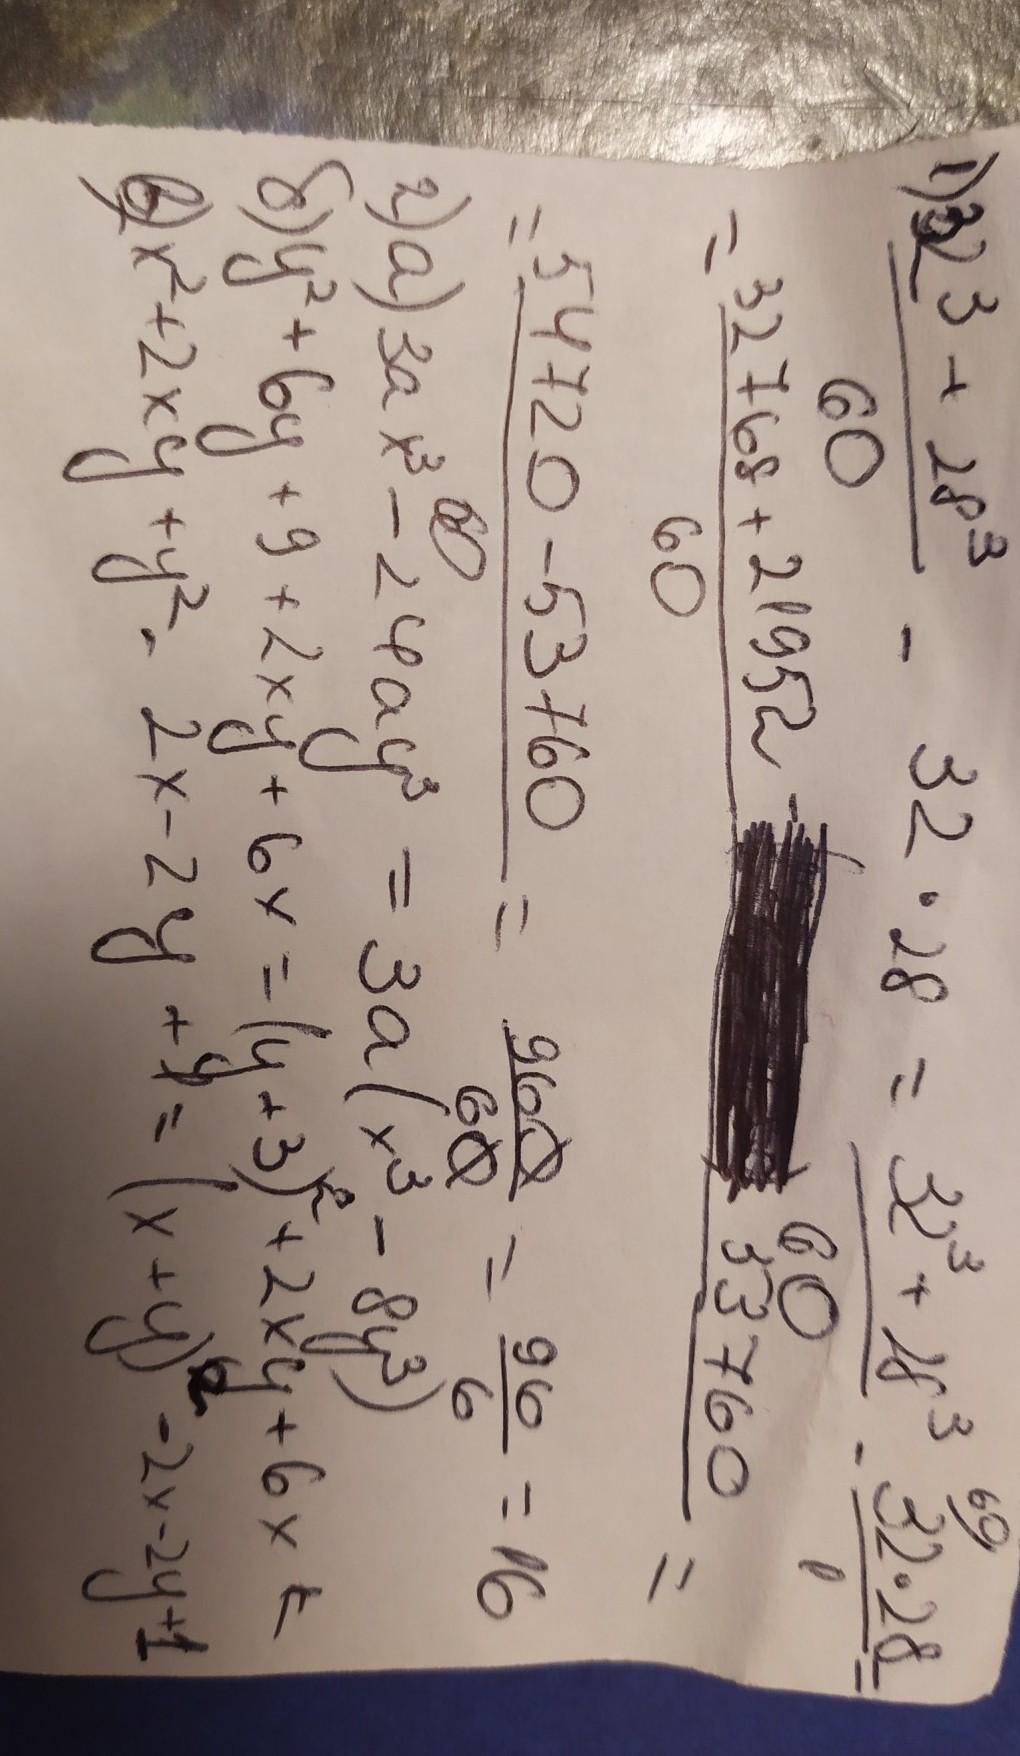 1) 32³ + 28³ / 60 - 32 · 28 = 32³ + 28³ / 60 - 32 · 28 / 1 =
= 32768 + 21952 - 53760 / 60 =
= 54720 - 53760 / 60 = 960 / 60 = 96 / 6 = 16
2) а) 3ax³ - 24ay³ = 3a(x³ - 8y³)
б) y² + 6y + 9 + 2xy + 6x = (y + 3)² + 2xy + 6x =
в) x² + 2xy + y² - 2x - 2y + 1 = (x + y)² - 2x - 2y + 1